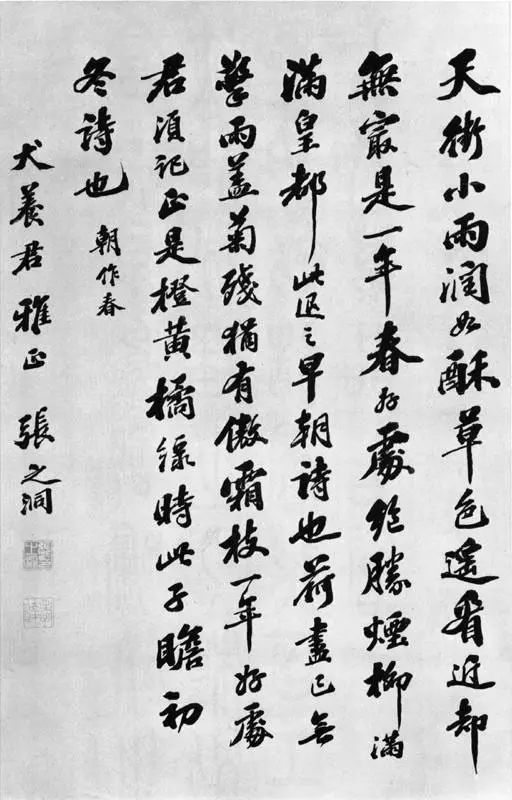 天街小雨潤如酥草色遙看近却
無㝡是一年春好處絶勝煙柳滿
滿皇都此退之早朝詩也荷盡已無
擎雨蓋菊殘猶有傲霜枝一年好處
君須記正是橙黃橘綠時此子瞻初
冬詩也 朝作春
犬養君雅正 張之洞